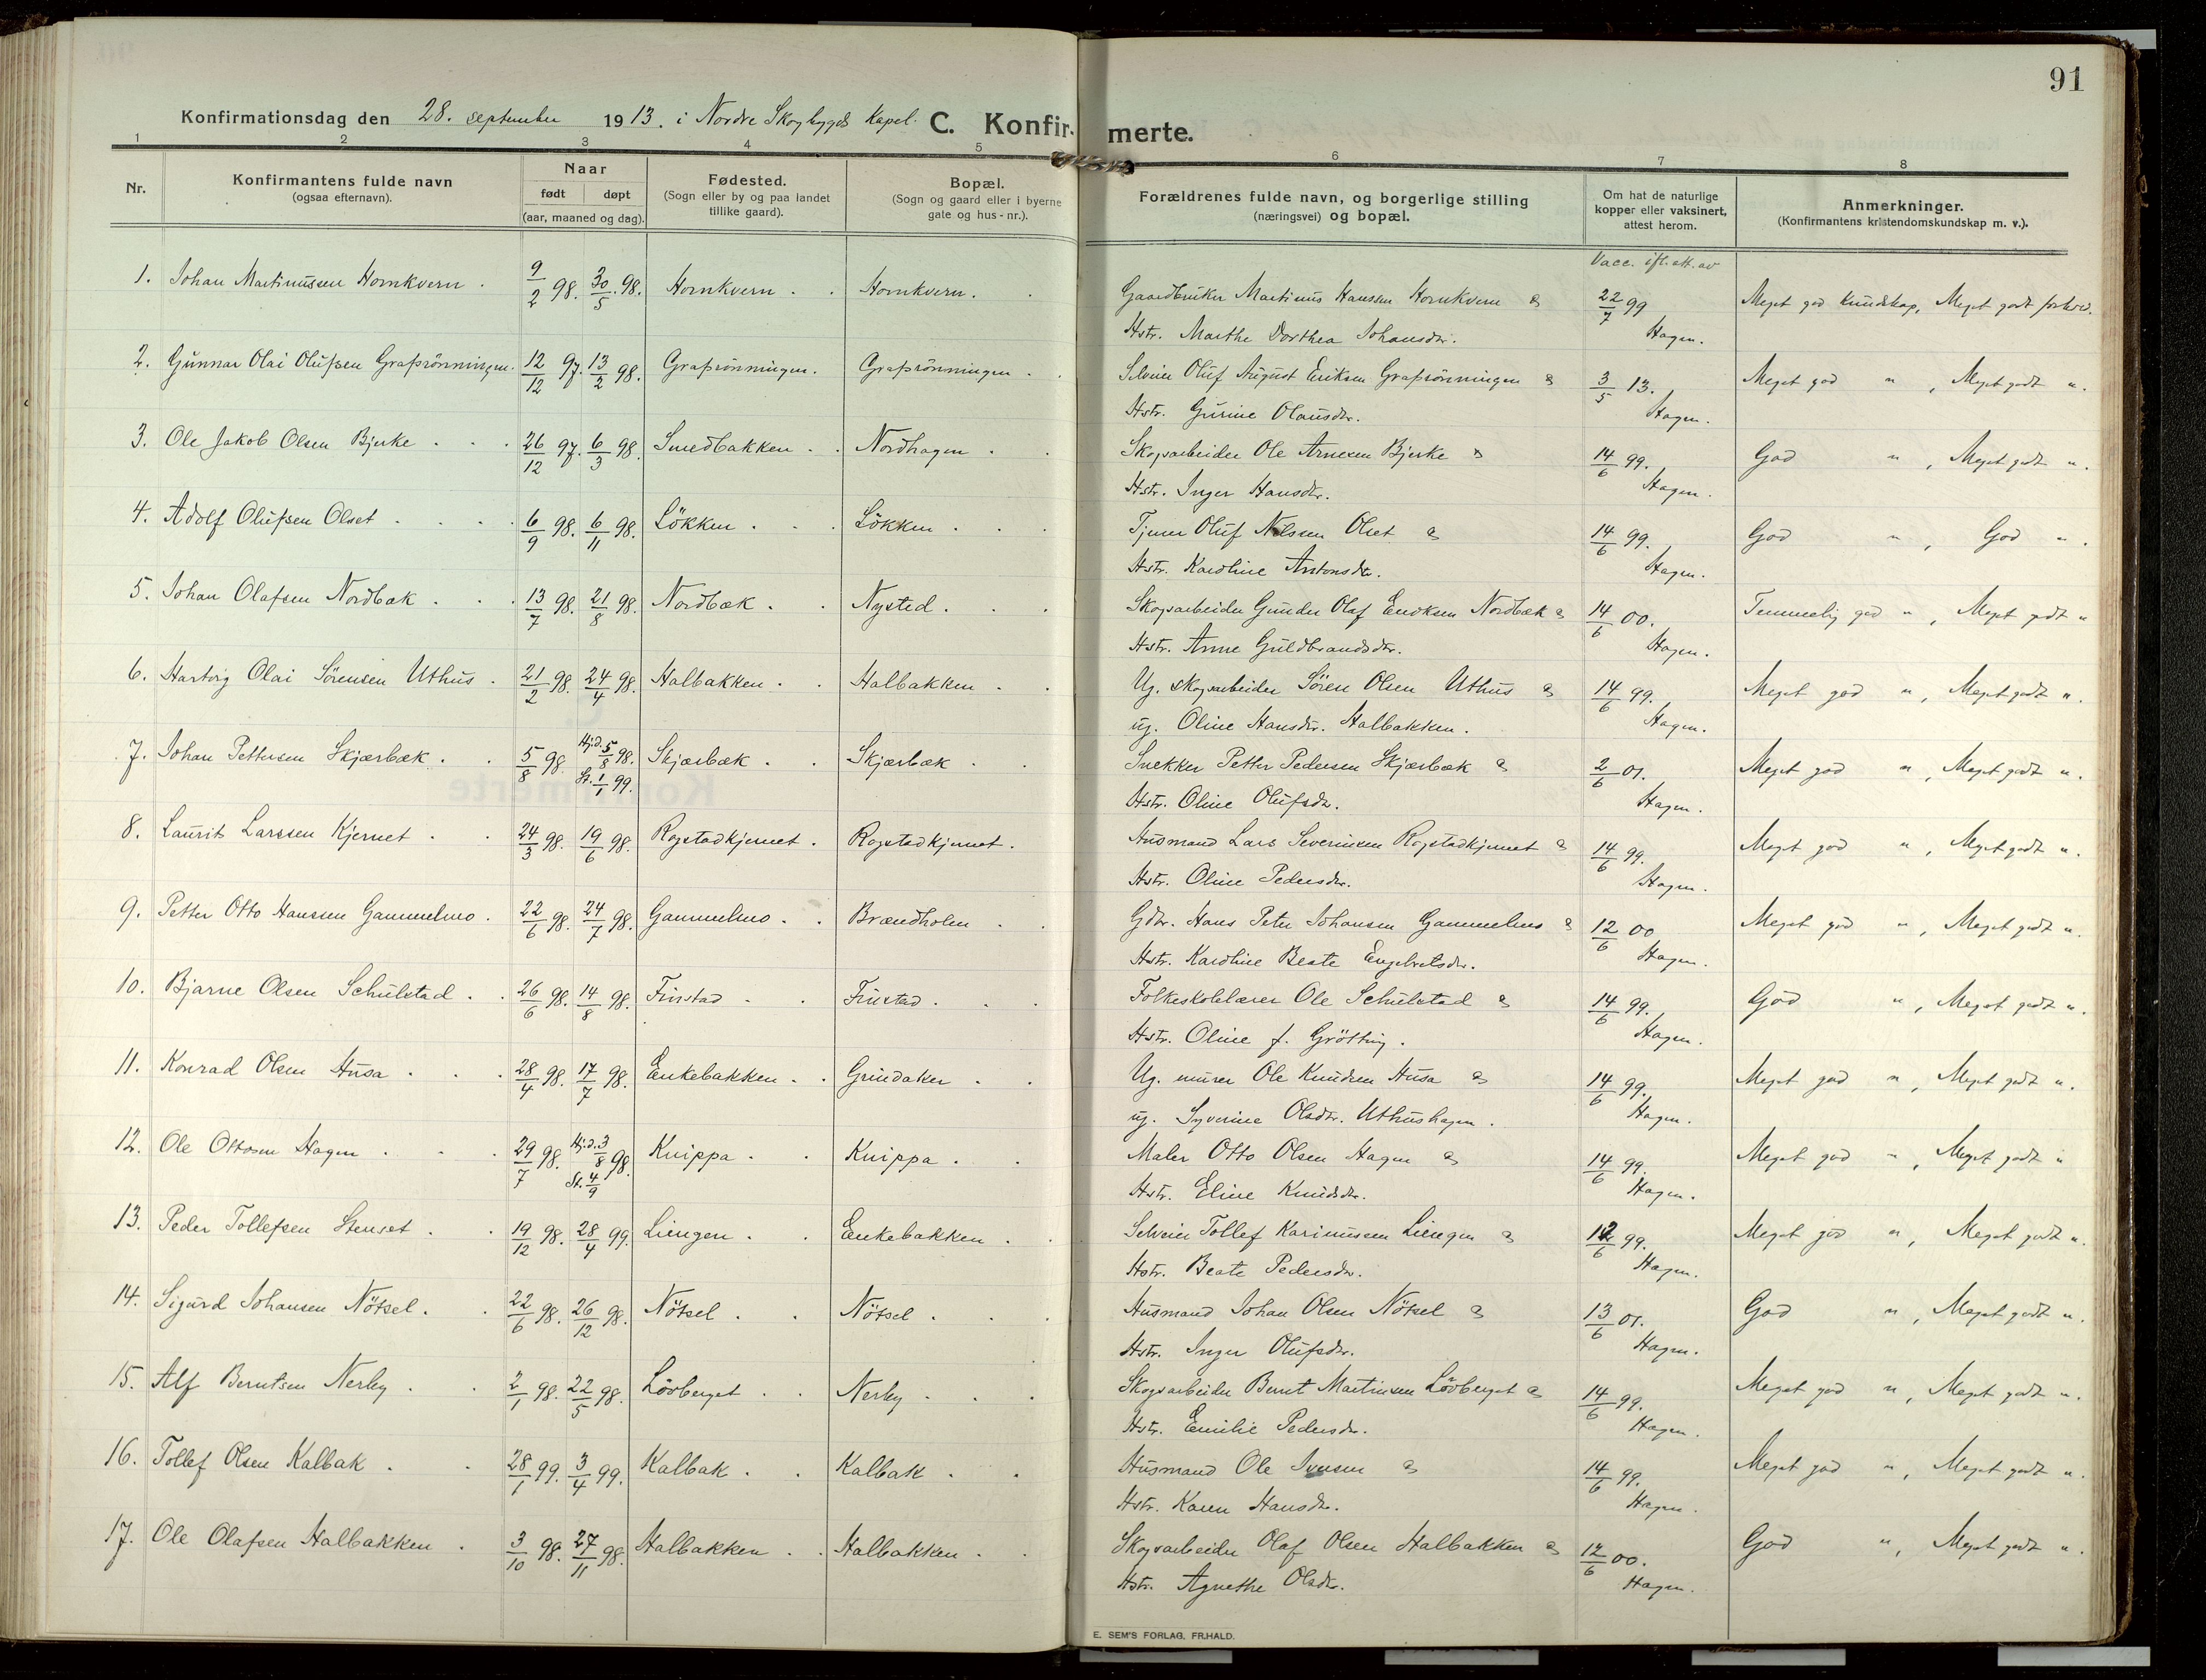 91
Konfirmationsdag den 28. september 1913. i Nordre Skogbygds Kapel. C. Konfirmerte.
1 2 3 4 5 6 7 8
Nr.
Konfirmantens fulde navn
(ogsaa efternavn).
Naar
født døpt
(aar, maaned og dag).
Fødested.
(Sogn eller by og paa landet
tillike gaard).
Bopæl.
(Sogn og gaard eller i byerne
gate og hus-nr.).
Forældrenes fulde navn, og borgerlige stilling
(næringsvei) og bopæl.
Om hat de naturlige
kopper eller vaksinert,
attest herom.
Anmerkninger.
(Konfirmantens kristendomskundskap m. v.).
Vacc. ifl. att. av
1. Johan Martinussen Hornkvern. 9/2 98. 30/5 98. Hornkvern. Hornkvern. Gaardbruker Martinus Hansen Hornkvern & 22/7 99 Meget god kundskap, Meget godt forhold.
Hstr. Marthe Dorthea Johansdtr. Hagen.
2. Gunnar Olai Olufsen Grafsrönningen. 12/12 97. 13/2 98. Grafsrönningen. Grafsrönningen. Selveier Oluf August Eriksen Grafsrönningen & 3/5 13. Meget god " , Meget godt ".
Hstr. Gurine Olausdtr. Hagen.
3. Ole Jakob Olsen Bjerke 26/12 97. 6/3 98. Smedbakken. Nordhagen. Skogsarbeider Ole Arnesen Bjerke & 14/6 99. God " , Meget godt ".
Hstr. Inger Hansdtr. Hagen.
4. Adolf Olufsen Olset 6/9 98. 6/11 98. Lökken. Lökken. Tjener Oluf Nilssen Olset & 14/6 99. God " , God ".
Hstr. Karoline Antonsdtr. Hagen.
5. Johan Olafsen Nordbæk 13/7 98. 21/8 98. Nordbæk. Nysted. Skogsarbeider Gunder Olaf Eriksen Nordbæk & 14/6 00. Temmelig god " , Meget godt "
Hstr. Anne Guldbrandsdtr. Hagen.
6. Hartvig Olai Sörensen Uthus. 21/2 98. 24/4 98. Halbakken. Halbakken. Ug. skogsarbeider Sören Olsen Uthus & 14/6 99. Meget god " , Meget godt ".
ug. Oline Hansdtr. Halbakken. Hagen.
7. Johan Pettersen Skjærbæk. 5/8 98. Hj.d. 5/8 98. Skjærbæk. Skjærbæk. Snekker Petter Pedersen Skjærbæk & 2/6 01. Meget god " , Meget godt ".
St. 1/1 99. Hstr. Oline Olufsdtr. Hagen.
8. Laurits Larssen Kjernet 24/3 98. 19/6 98. Rogstadkjernet. Rogstadkjernet. Husmand Lars Severinsen Rogstadkjernet & 14/6 99. Meget god " , Meget godt ".
Hstr. Oline Pedersdtr. Hagen.
9. Petter Otto Hanssen Gammelmo. 22/6 98. 24/7 98. Gammelmo. Brændholen Gdbr. Hans Peter Johansen Gammelmo & 12/6 00 Meget god " , Meget godt ".
Hstr. Karoline Beate Engebretsdtr. Hagen.
10. Bjarne Olsen Schulstad. 26/6 98. 14/8 98. Finstad Finstad. Folkeskolelærer Ole Schulstad & 14/6 99. God " , Meget godt ".
Hstr. Oline f. Grötting. Hagen.
11. Konrad Olsen Husa 28/4 98. 17/7 98. Enkebakken. Grindaker Ug. murer Ole Knudsen Husa & 14/6 99. Meget god " , Meget godt ".
ug. Syverine Olsdtr. Uthushagen. Hagen.
12. Ole Ottosen Hagen 29/7 98. Hj.d. 3/8 98. Knippa. Knippa. Maler Otto Olsen Hagen & 14/6 99. Meget god " , Meget godt "
St. 4/9 Hstr. Eline Knudsdtr. Hagen.
13. Peder Tollefsen Stenset 19/12 98. 28/4 99. Liengen. Enkebakken. Selveier Tollef Karinussen Liengen & 12/6 99. Meget god " , Meget godt ".
Hstr. Beate Pedersdtr. Hagen.
14. Sigurd Johansen Nötsel. 22/6 98. 26/12 98. Nötsel Nötsel Husmand Johan Olsen Nötsel & 13/6 01. God " , Meget godt ".
Hstr. Inger Olufsdtr. Hagen.
15. Alf Berntsen Nerby 2/1 98. 22/5 98. Lövberget Nerby Skogsarbeider Bernt Martinsen Lövberget & 14/6 99. Meget god " , Meget godt ".
Hstr. Emilie Pedersdtr. Hagen.
16. Tollef Olsen Kalbak 28/1 99. 3/4 99. Kalbak. Kalbak Husmand Ole Iversen & 14/6 99. Meget god " , Meget godt ".
Hstr. Karen Hansdtr. Hagen.
17. Ole Olafsen Halbakken 3/10 98. 27/11 98. Halbakken Halbakken Skogsarbeider Olaf Olsen Halbakken & 12/6 00. God " , Meget godt ".
Hstr. Agnethe Olsdtr. Hagen.
E. SEM'S FORLAG, FR.HALD.